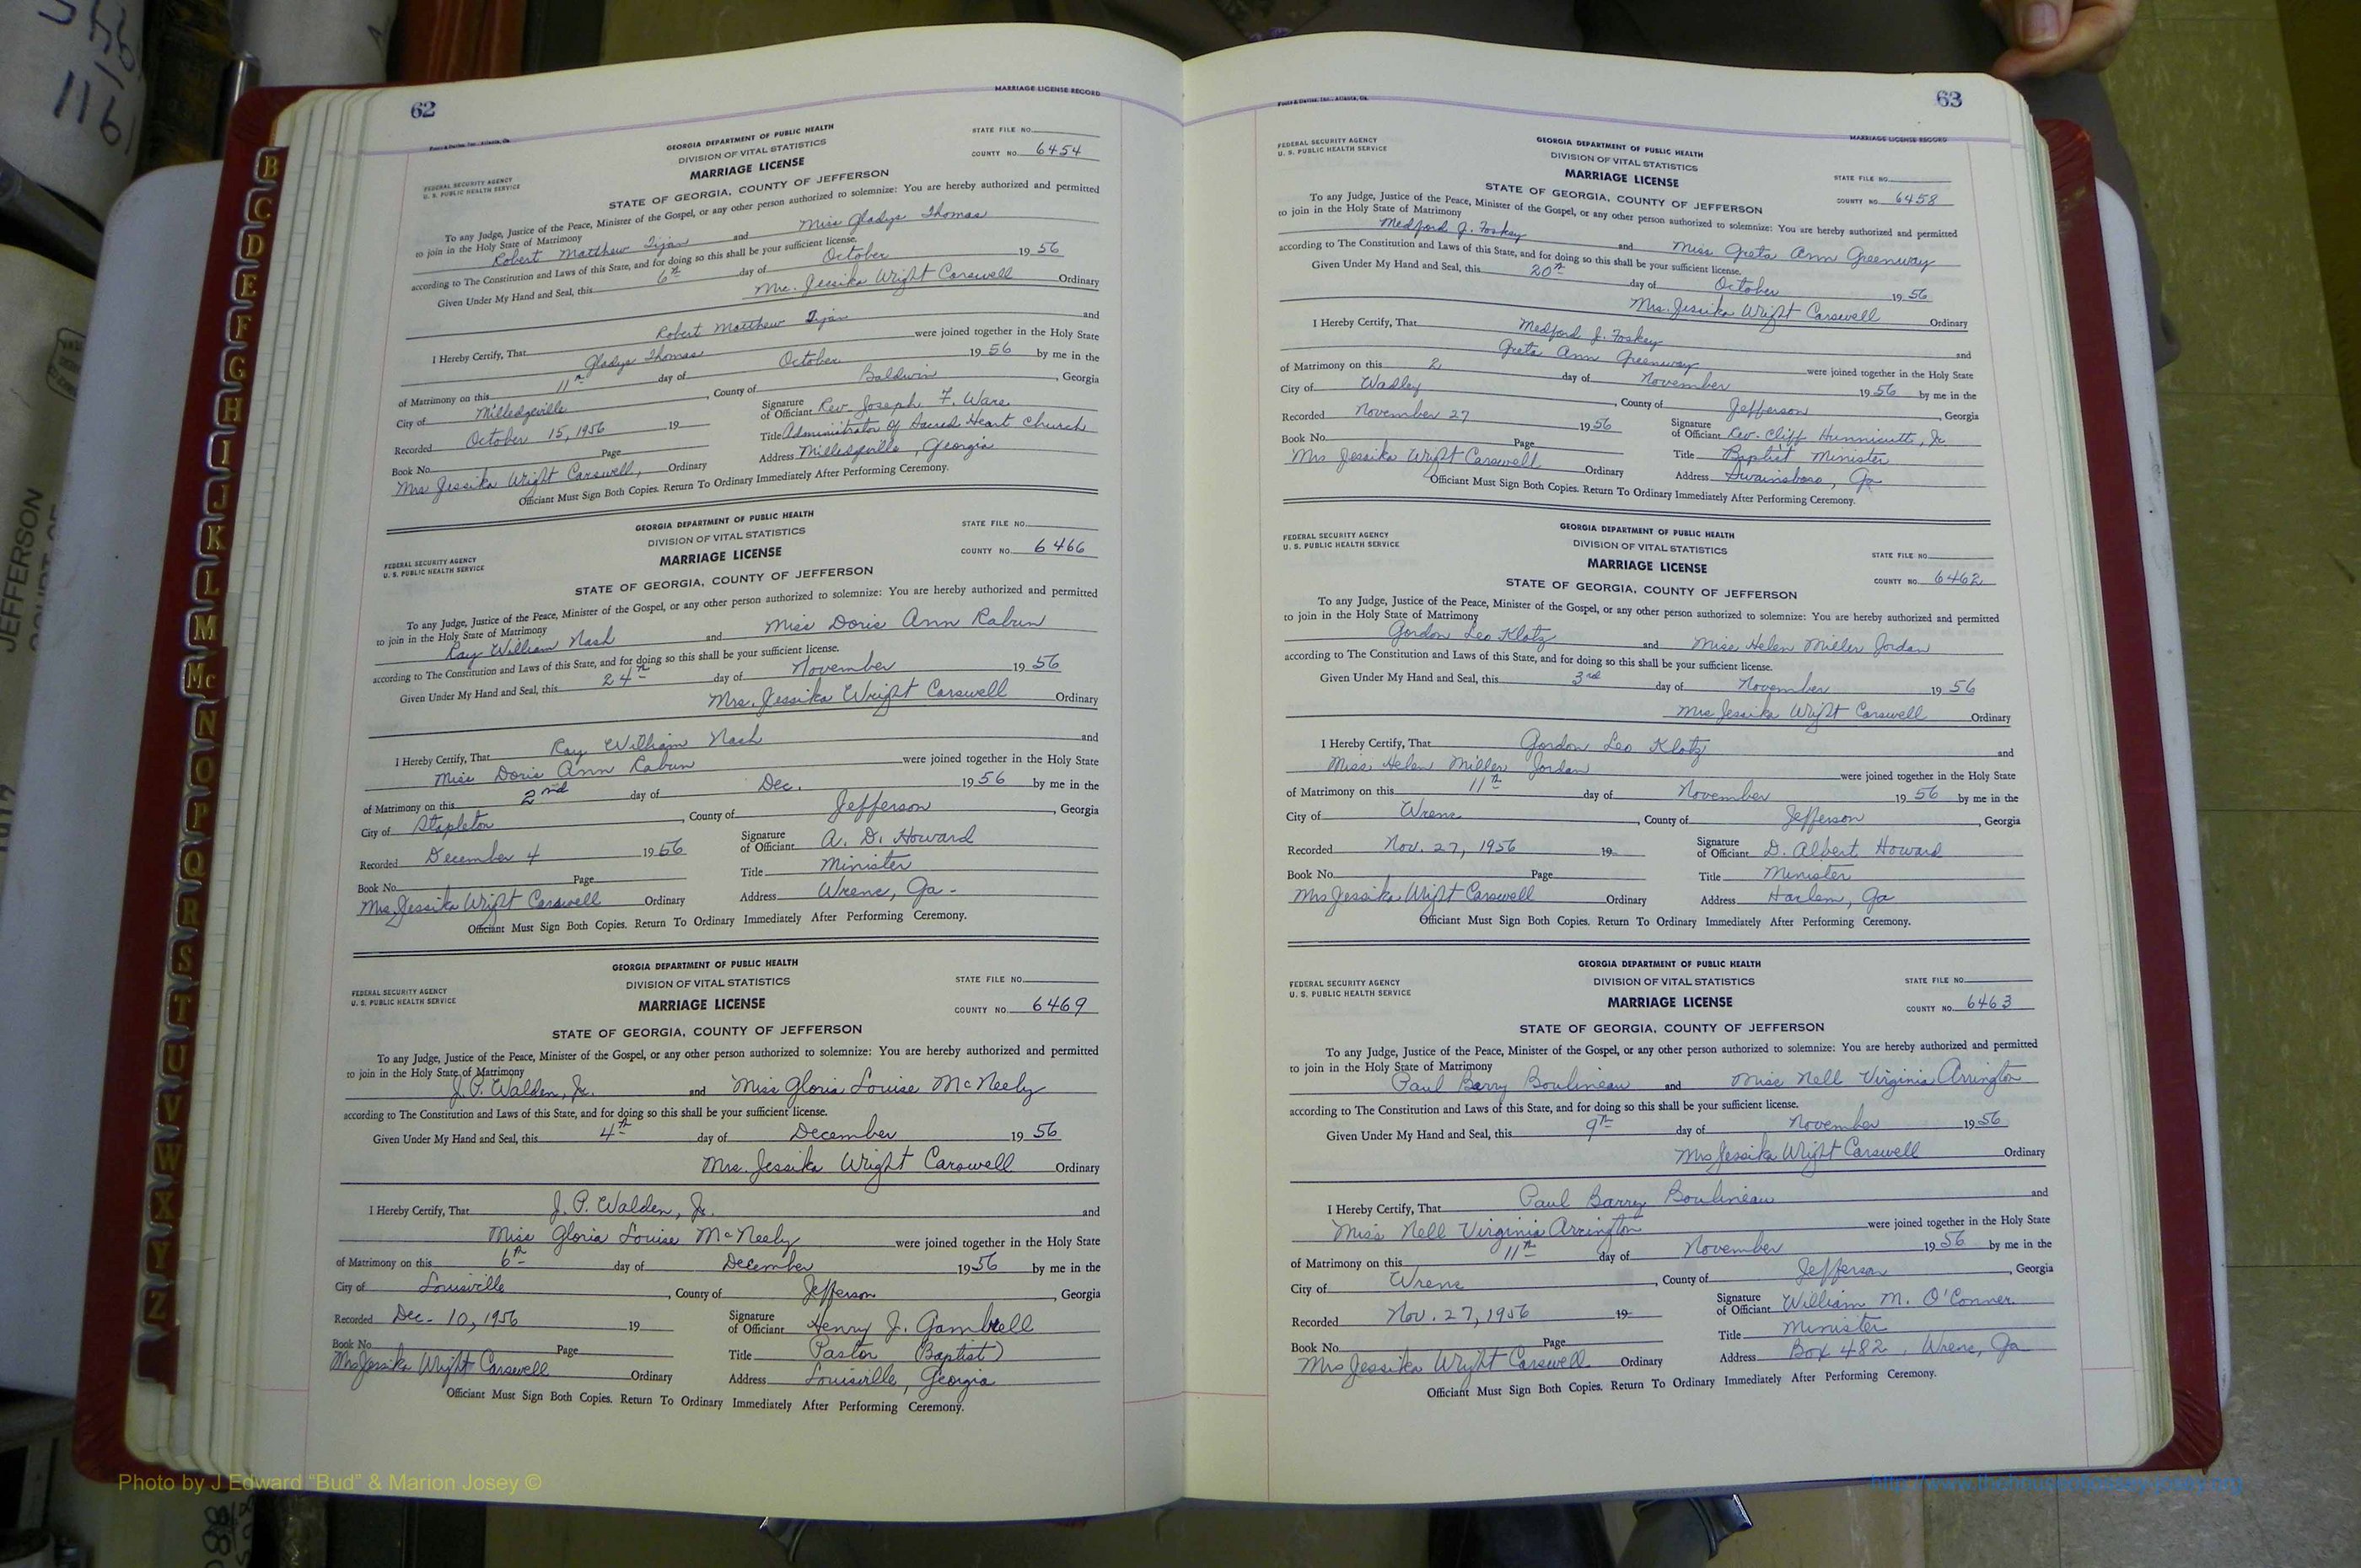 62
MARRIAGE LICENSE RECORD
GEORGIA DEPARTMENT OF PUBLIC HEALTH
DIVISION OF VITAL STATISTICS
MARRIAGE LICENSE
STATE FILE NO.
COUNTY NO. 6454
FEDERAL SECURITY AGENCY
U. S. PUBLIC HEALTH SERVICE
STATE OF GEORGIA, COUNTY OF JEFFERSON
To any Judge, Justice of the Peace, Minister of the Gospel, or any other person authorized to solemnize: You are hereby authorized and permitted
to join in the Holy State of Matrimony
Robert Matthew and Miss Gladys Thomas
according to The Constitution and Laws of this State, and for doing so this shall be your sufficient license.
Given Under My Hand and Seal, this 6th day of October 1956
Mrs. Jessika Wright Carswell Ordinary
I Hereby Certify, That Robert Matthew and
Gladys Thomas were joined together in the Holy State
of Matrimony on this 11th day of October 1956 by me in the
City of Milledgeville, County of Baldwin, Georgia
Recorded October 15, 1956 19
Signature of Officiant Rev. Joseph F. Ware
Book No. Page
Title Administrator of Sacred Heart Church
Mrs Jessika Wright Carswell, Ordinary
Address Milledgeville, Georgia
Officiant Must Sign Both Copies. Return To Ordinary Immediately After Performing Ceremony.
GEORGIA DEPARTMENT OF PUBLIC HEALTH
DIVISION OF VITAL STATISTICS
MARRIAGE LICENSE
STATE FILE NO.
COUNTY NO. 6466
FEDERAL SECURITY AGENCY
U. S. PUBLIC HEALTH SERVICE
STATE OF GEORGIA, COUNTY OF JEFFERSON
To any Judge, Justice of the Peace, Minister of the Gospel, or any other person authorized to solemnize: You are hereby authorized and permitted
to join in the Holy State of Matrimony
Ray William Nash and Miss Doris Ann Rabun
according to The Constitution and Laws of this State, and for doing so this shall be your sufficient license.
Given Under My Hand and Seal, this 24th day of November 1956
Mrs. Jessika Wright Carswell Ordinary
I Hereby Certify, That Ray William Nash and
Miss Doris Ann Rabun were joined together in the Holy State
of Matrimony on this 2nd day of Dec. 1956 by me in the
City of Stapleton, County of Jefferson, Georgia
Recorded December 4 1956
Signature of Officiant A. D. Howard
Book No. Page
Title Minister
Mrs. Jessika Wright Carswell Ordinary
Address Wrens, Ga.
Officiant Must Sign Both Copies. Return To Ordinary Immediately After Performing Ceremony.
GEORGIA DEPARTMENT OF PUBLIC HEALTH
DIVISION OF VITAL STATISTICS
MARRIAGE LICENSE
STATE FILE NO.
COUNTY NO. 6469
FEDERAL SECURITY AGENCY
U. S. PUBLIC HEALTH SERVICE
STATE OF GEORGIA, COUNTY OF JEFFERSON
To any Judge, Justice of the Peace, Minister of the Gospel, or any other person authorized to solemnize: You are hereby authorized and permitted
to join in the Holy State of Matrimony
J. P. Walden, Jr. and Miss Gloria Louise McNeely
according to The Constitution and Laws of this State, and for doing so this shall be your sufficient license.
Given Under My Hand and Seal, this 4th day of December 1956
Mrs. Jessika Wright Carswell Ordinary
I Hereby Certify, That J. P. Walden, Jr. and
Miss Gloria Louise McNeely were joined together in the Holy State
of Matrimony on this 6th day of December 1956 by me in the
City of Louisville, County of Jefferson, Georgia
Recorded Dec. 10, 1956 19
Signature of Officiant Henry J. Gambrell
Book No. Page
Title Pastor (Baptist)
Mrs Jessika Wright Carswell Ordinary
Address Louisville, Georgia
Officiant Must Sign Both Copies. Return To Ordinary Immediately After Performing Ceremony.
63
MARRIAGE LICENSE RECORD
FEDERAL SECURITY AGENCY
U. S. PUBLIC HEALTH SERVICE
GEORGIA DEPARTMENT OF PUBLIC HEALTH
DIVISION OF VITAL STATISTICS
MARRIAGE LICENSE
STATE FILE NO.
COUNTY NO. 6458
STATE OF GEORGIA, COUNTY OF JEFFERSON
To any Judge, Justice of the Peace, Minister of the Gospel, or any other person authorized to solemnize: You are hereby authorized and permitted
to join in the Holy State of Matrimony
Medford J. Foskey and Miss Greta Ann Greenway
according to The Constitution and Laws of this State, and for doing so this shall be your sufficient license.
Given Under My Hand and Seal, this 20th day of October 1956
Mrs. Jessika Wright Carswell Ordinary
I Hereby Certify, That Medford J. Foskey and
Greta Ann Greenway were joined together in the Holy State
of Matrimony on this 2 day of November 1956 by me in the
City of Wadley, County of Jefferson, Georgia
Recorded November 27 1956
Signature of Officiant Rev. Cliff Hunnicutt, Jr
Book No. Page
Title Baptist Minister
Mrs Jessika Wright Carswell Ordinary
Address Swainsboro, Ga
Officiant Must Sign Both Copies. Return To Ordinary Immediately After Performing Ceremony.
GEORGIA DEPARTMENT OF PUBLIC HEALTH
DIVISION OF VITAL STATISTICS
MARRIAGE LICENSE
FEDERAL SECURITY AGENCY
U. S. PUBLIC HEALTH SERVICE
STATE FILE NO.
COUNTY NO. 6462
STATE OF GEORGIA, COUNTY OF JEFFERSON
To any Judge, Justice of the Peace, Minister of the Gospel, or any other person authorized to solemnize: You are hereby authorized and permitted
to join in the Holy State of Matrimony
Gordon Leo Klotz and Miss Helen Miller Jordan
according to The Constitution and Laws of this State, and for doing so this shall be your sufficient license.
Given Under My Hand and Seal, this 3rd day of November 1956
Mrs Jessika Wright Carswell Ordinary
I Hereby Certify, That Gordon Leo Klotz and
Miss Helen Miller Jordan were joined together in the Holy State
of Matrimony on this 11th day of November 1956 by me in the
City of Wrens, County of Jefferson, Georgia
Recorded Nov. 27, 1956 19
Signature of Officiant D. Albert Howard
Book No. Page
Title Minister
Mrs Jessika Wright Carswell Ordinary
Address Harlem, Ga
Officiant Must Sign Both Copies. Return To Ordinary Immediately After Performing Ceremony.
GEORGIA DEPARTMENT OF PUBLIC HEALTH
DIVISION OF VITAL STATISTICS
MARRIAGE LICENSE
FEDERAL SECURITY AGENCY
U. S. PUBLIC HEALTH SERVICE
STATE FILE NO.
COUNTY NO. 6463
STATE OF GEORGIA, COUNTY OF JEFFERSON
To any Judge, Justice of the Peace, Minister of the Gospel, or any other person authorized to solemnize: You are hereby authorized and permitted
to join in the Holy State of Matrimony
Paul Barry Boulineau and Miss Nell Virginia Arrington
according to The Constitution and Laws of this State, and for doing so this shall be your sufficient license.
Given Under My Hand and Seal, this 9th day of November 1956
Mrs Jessika Wright Carswell Ordinary
I Hereby Certify, That Paul Barry Boulineau and
Miss Nell Virginia Arrington were joined together in the Holy State
of Matrimony on this 11th day of November 1956 by me in the
City of Wrens, County of Jefferson, Georgia
Recorded Nov. 27, 1956 19
Signature of Officiant William M. O'Conner
Book No. Page
Title Minister
Mrs Jessika Wright Carswell Ordinary
Address Box 482, Wrens, Ga
Officiant Must Sign Both Copies. Return To Ordinary Immediately After Performing Ceremony.
B
C
D
E
F
G
H
I
J
K
L
M
Mc
N
O
P
Q
R
S
T
U
V
W
X
Y
Z
JEFFERSON
116
Photo by J Edward “Bud” & Marion Josey ©